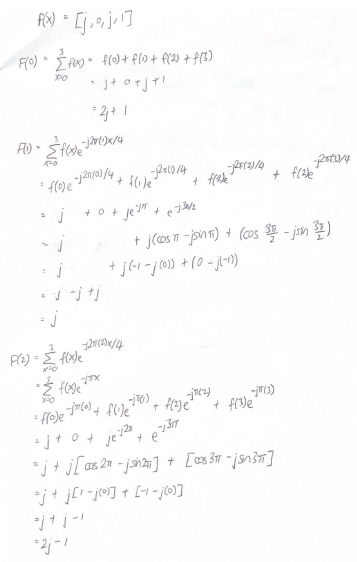 f(x) = [j, 0, j, 1]
F(0) = 3∑x=0 f(x) = f(0) + f(1) + f(2) + f(3)
= j + 0 + j + 1
= 2j + 1
F(1) = 3∑x=0 f(x)e^-j2π(1)x/4
= f(0)e^-j2π(0)/4 + f(1)e^-j2π(1)/4 + f(2)e^-j2π(2)/4 + f(3)e^-j2π(3)/4
= j + 0 + je^-jπ + e^-j3π/2
= j + j(cos π - jsin π) + (cos 3π/2 - jsin 3π/2)
= j + j(-1 - j(0)) + (0 - j(-1))
= j - j + j
= j
F(2) = 3∑x=0 f(x)e^-j2π(2)x/4
= 3∑x=0 f(x)e^-jπx
= f(0)e^-jπ(0) + f(1)e^-jπ(1) + f(2)e^-jπ(2) + f(3)e^-jπ(3)
= j + 0 + je^-j2π + e^-j3π
= j + j[cos 2π - jsin2π] + [cos 3π - jsin 3π]
= j + j[1 - j(0)] + [-1 - j(0)]
= j + j - 1
= 2j - 1